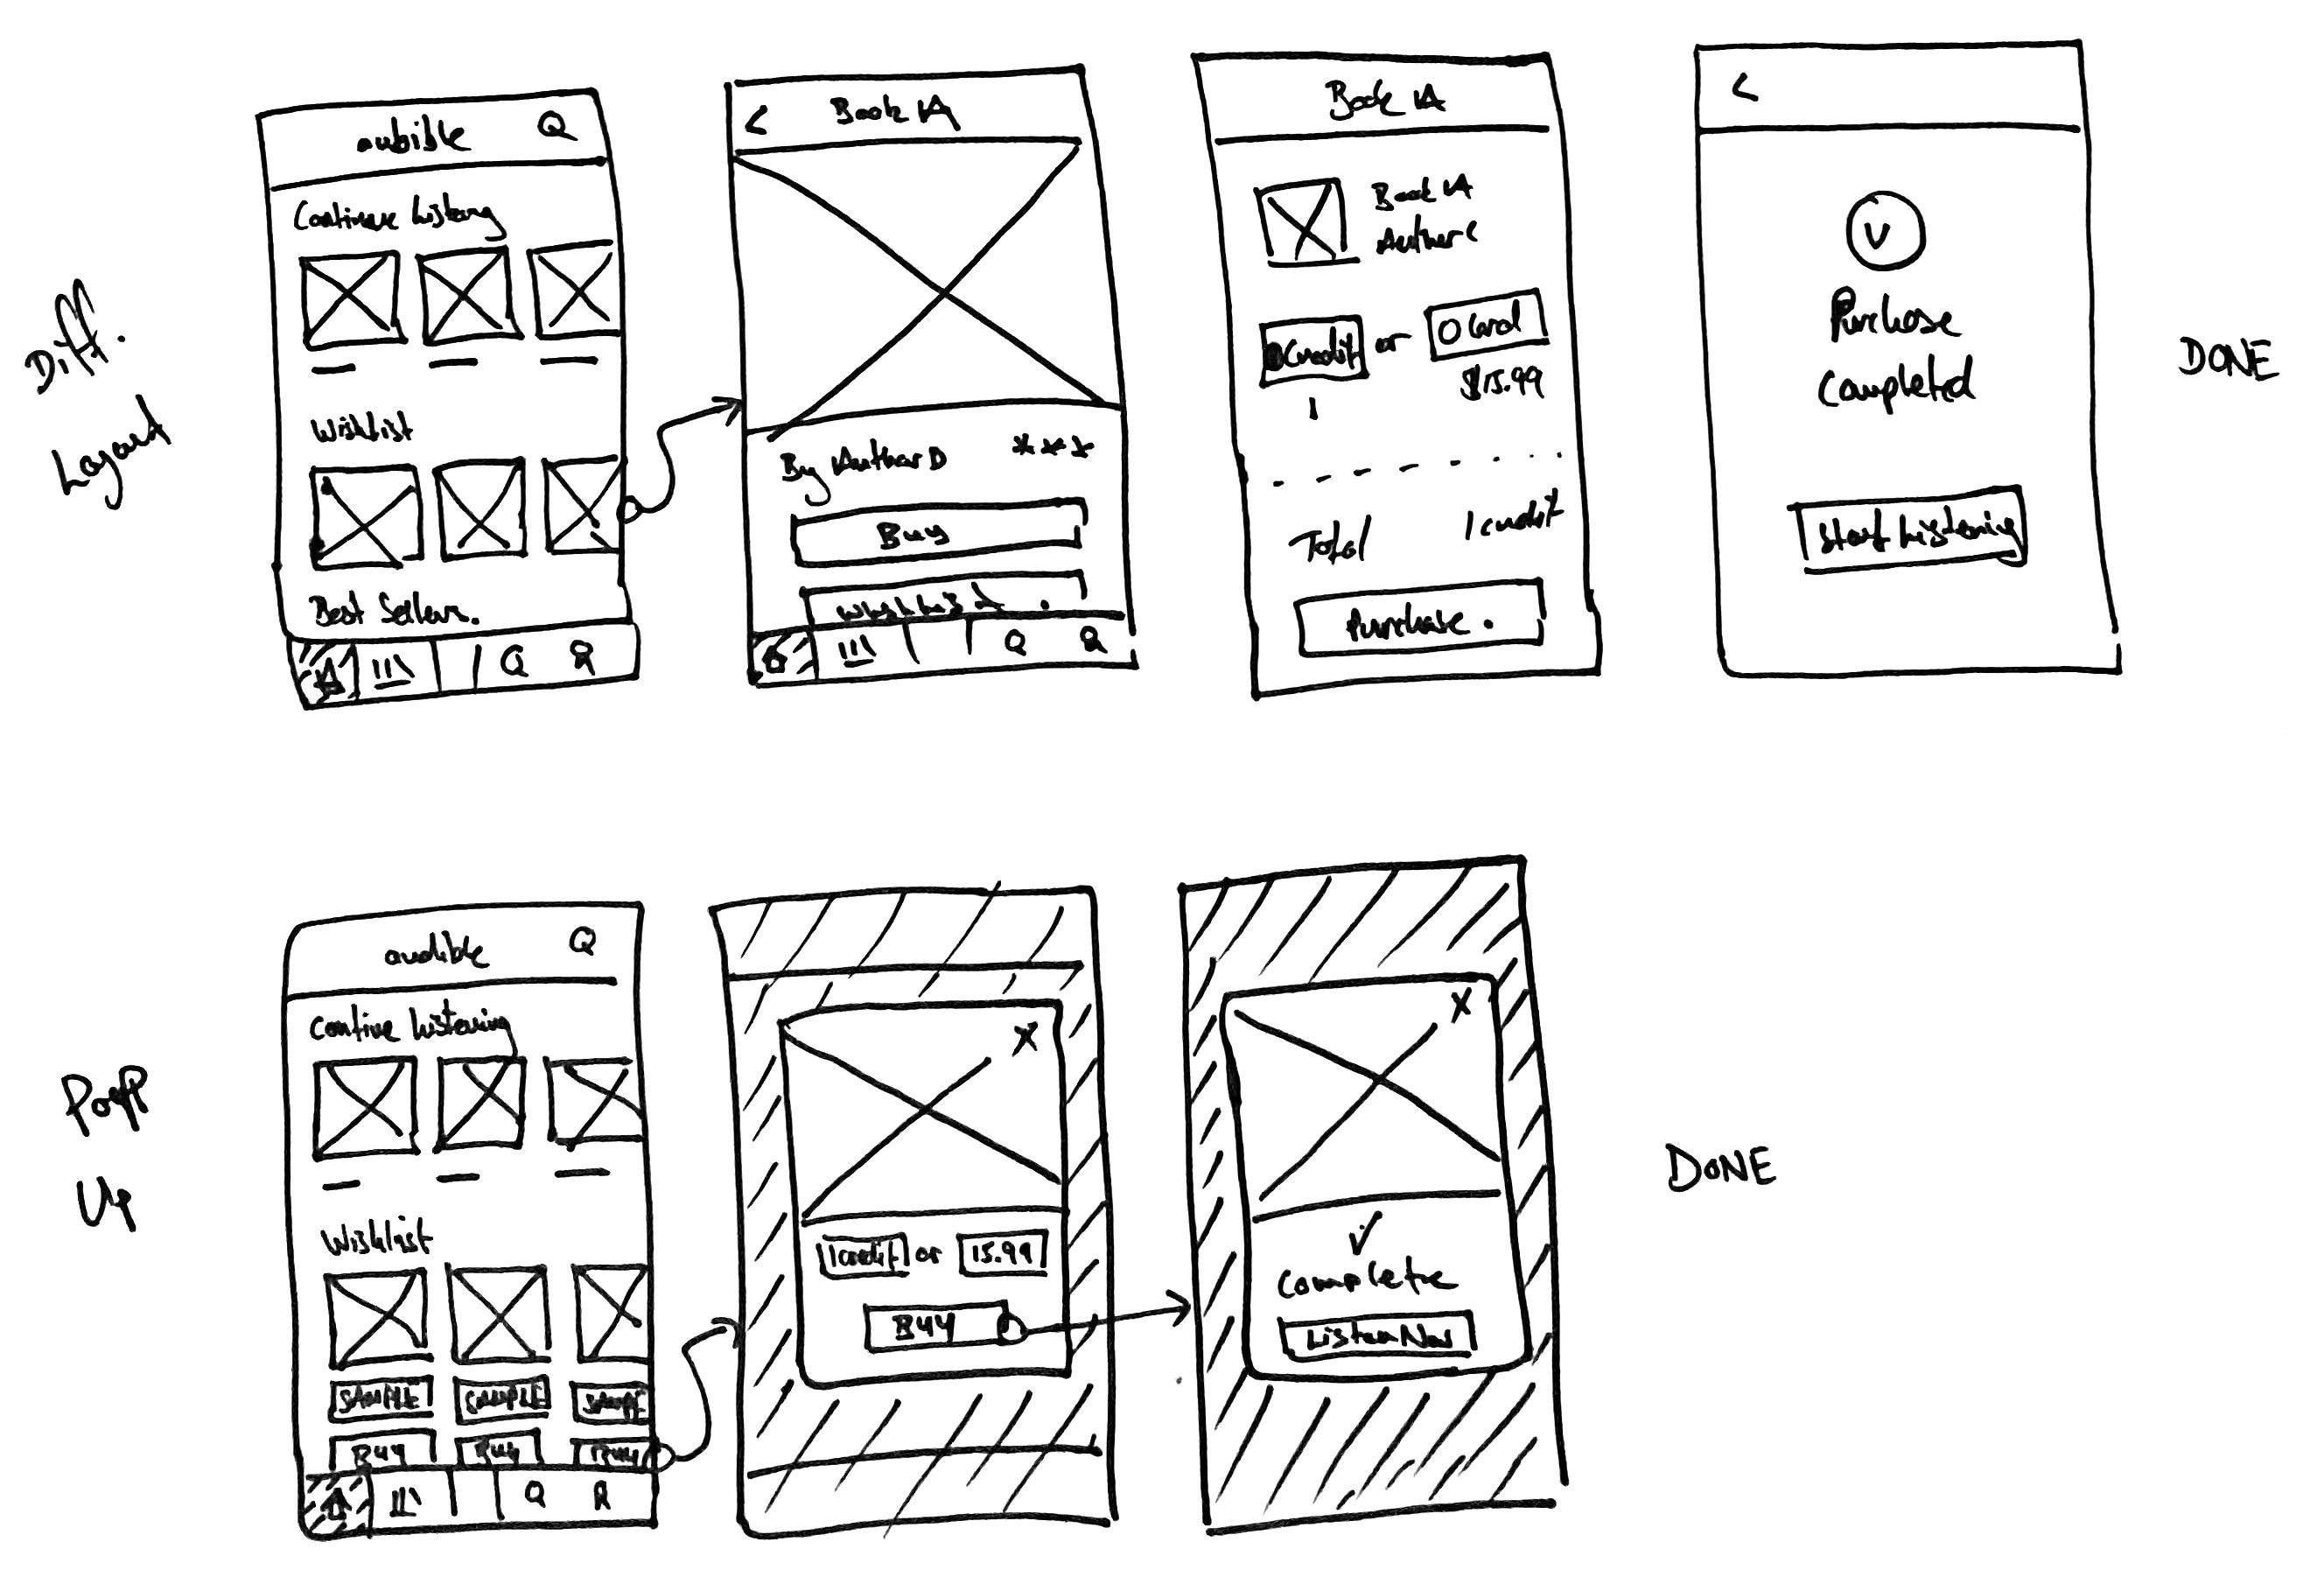 Diff.
Layout
audible
Continue Listening
Wishlist
Best Sellers.
< Book A
By Author D ***
Buy
Wishlist
Book A
Book A
Author C
Credit or Card
1 $15.99
Total 1 credit
Purchase.
<
V
Purchase
Completed
Start Listening
DONE
Pop
Up
audible
Contine Listening
Wishlist
SAMPLE SAMPLE SAMPE
BUY BUY BUY
X
1 credit or 15.99
BUY
X
✓
Complete
Listen Now
DONE